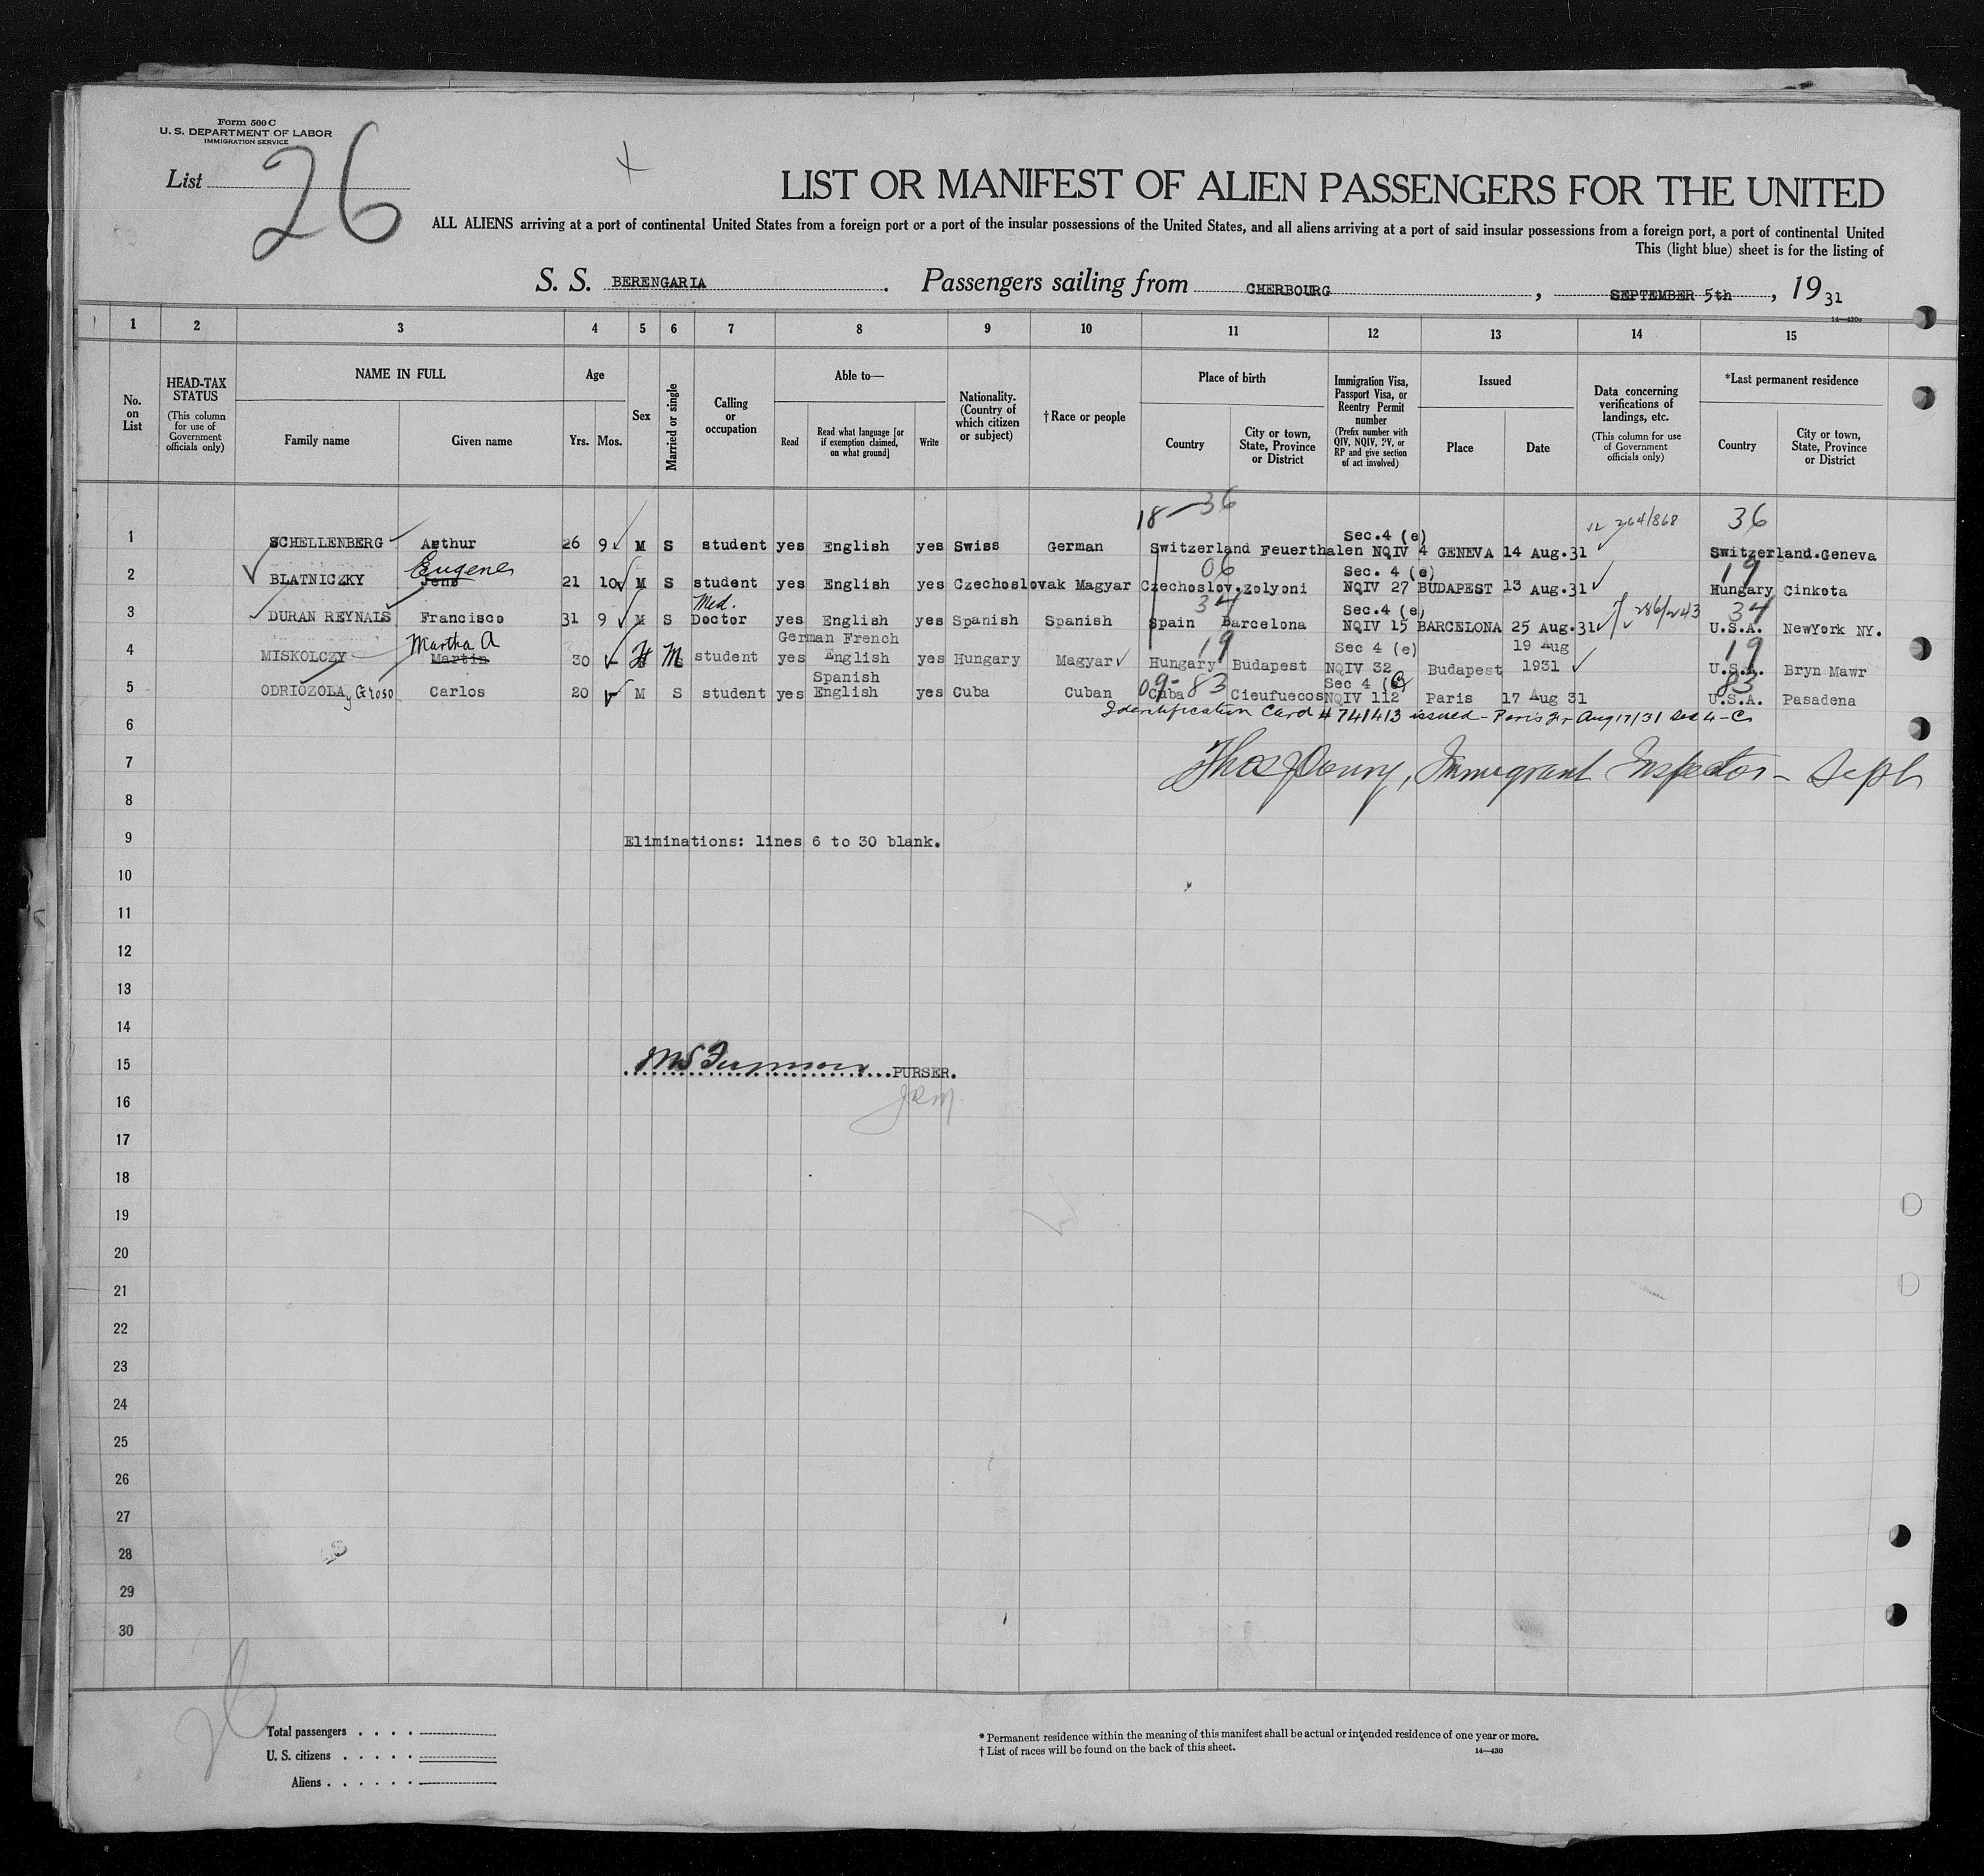 Form 500 C
U. S. DEPARTMENT OF LABOR
IMMIGRATION SERVICE
List 26
LIST OR MANIFEST OF ALIEN PASSENGERS FOR THE UNITED
ALL ALIENS arriving at a port of continental United States from a foreign port or a port of the insular possessions of the United States, and all aliens arriving at a port of said insular possessions from a foreign port, a port of continental United
This (light blue) sheet is for the listing of
S. S. BERENGARIA. Passengers sailing from CHERBOURG, SEPTEMBER 5th, 1931
14—430c
1 2 3 4 5 6 7 8 9 10 11 12 13 14 15
No. on List
HEAD-TAX STATUS (This column for use of Government officials only)
NAME IN FULL
Family name Given name
Age
Yrs. Mos.
Sex
Married or single
Calling or occupation
Able to—
Read
Read what language [or if exemption claimed, on what ground]
Write
Nationality. (Country of which citizen or subject)
†Race or people
Place of birth
Country
City or town, State, Province or District
Immigration Visa, Passport Visa, or Reentry Permit number (Prefix number with QIV, NQIV, PV, or RP and give section of act involved)
Issued
Place Date
Data concerning verifications of landings, etc. (This column for use of Government officials only)
*Last permanent residence
Country
City or town, State, Province or District
18 — 36 Sec.4 (e) 264/868 36
1 SCHELLENBERG Arthur 26 9 M S student yes English yes Swiss German Switzerland Feuerthalen NQIV 4 GENEVA 14 Aug.31 Switzerland.Geneva
Eugene 06 Sec. 4 (e) 19
2 BLATNICZKY Jenö 21 10 M S student yes English yes Czechoslovak Magyar Czechoslov.zolyoni NQIV 27 BUDAPEST 13 Aug.31 Hungary Cinkota
Med. 34 Sec.4 (e) 286/243 34
3 DURAN REYNALS Francisco 31 9 M S Doctor yes English yes Spanish Spanish Spain Barcelona NQIV 15 BARCELONA 25 Aug.31 U.S.A. NewYork NY.
Martha A German French 19 Sec 4 (e) 19 Aug 19
4 MISKOLCZY Martin 30 M student yes English yes Hungary Magyar Hungary Budapest NQIV 32 Budapest 1931 U.S.A. Bryn Mawr
Spanish 09-83 Sec 4 (C) 83
5 ODRIOZOLA y Groso Carlos 20 M S student yes English yes Cuba Cuban Cuba Cieufuecos NQIV 112 Paris 17 Aug 31 U.S.A. Pasadena
Identification Card # 741413 issued - Paris Fr Aug 17/31 Sec 4-C
6
7 Immigrant Inspector - Sept
8
9 Eliminations: lines 6 to 30 blank.
10
11
12
13
14
15 PURSER.
16
17
18
19
20
21
22
23
24
25
26
27
28
29
30
26
Total passengers
U. S. citizens
Aliens
* Permanent residence within the meaning of this manifest shall be actual or intended residence of one year or more.
† List of races will be found on the back of this sheet.
14—430